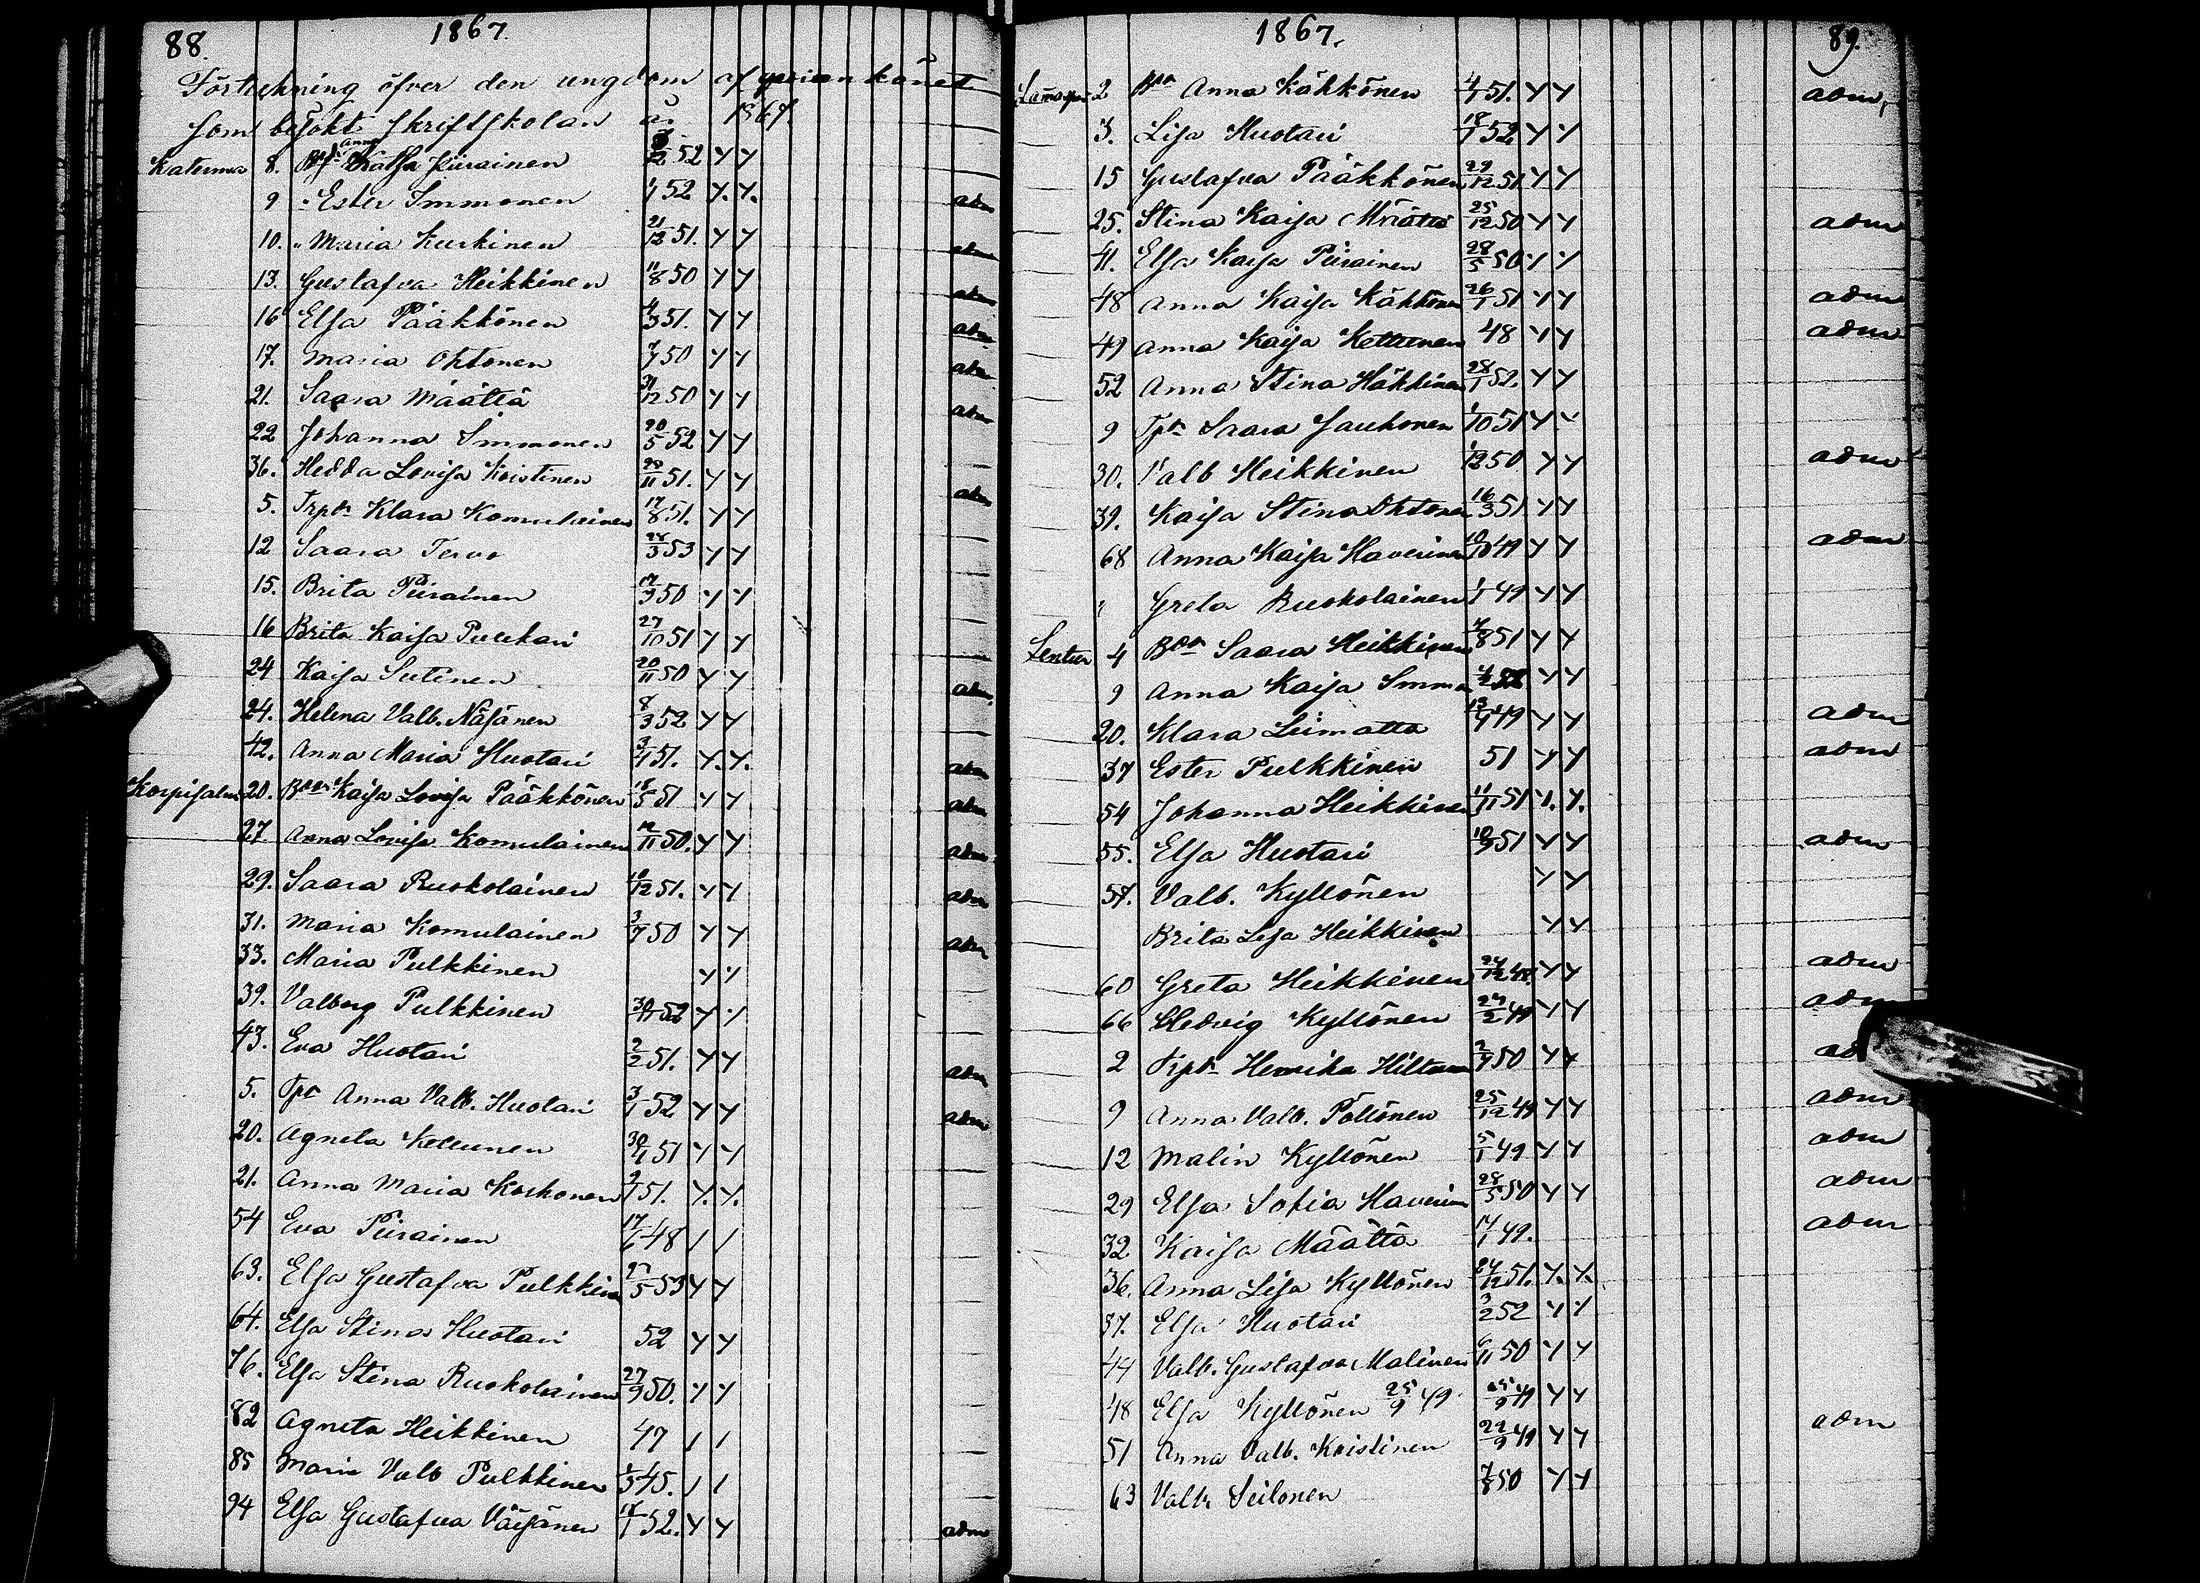 88. 1867.
Förtekning öfver den ungdom af qvinnkönet
som besökt Skriftskolan år 1867.
Katerma 8. Bd. Anna Kaisa Piirainen 52 y y
9 " Ester Immonen 52 y. y. adm
10. " Maria Kurkinen 21/12 51. y y adm
13. Gustafva Heikkinen 11/8 50 y y adm
16 Elsa Pääkkönen 4/3 51. y y adm
17. Maria Ohtonen 50 y y adm
21. Saara Määttä 31/12 50 y y adm
22 Johanna Immonen 20/5 52 y y
36. Hedda Lovisa Koistinen 28/11 51. y y adm
5. Trpdr Klara Komulainen 17/8 51. y y
12 Saara Tervo 28/3 53 y y
15. Brita Piirainen 17/3 50 y y
16 Brita Kaisa Puukari 27/10 51 y y
24 Kaisa Sutinen 20/11 50 y y adm
24. Helena Valb. Näsänen 8/3 52 y y
42. Anna Maria Huotari 51. y. y. adm
Korpisalmi 20. Bdr Kaisa Lovisa Pääkkönen 18/5 51 y y adm
27. Anna Lovisa Komulainen 12/11 50. y y adm
29. Saara Ruokolainen 10/12 51. y y adm
31. Maria Komulainen 3/9 50 y y adm
33. Maria Pulkkinen y y
39. Valborg Pulkkinen 30/11 52 y y
43. Eva Huotari 2/2 51. y y adm
5. Tpr Anna Valb. Huotari 3/1 52 y y adm
20. Agneta Kettunen 51 y y
21. Anna Maria Korhonen 51. y. y.
54 Eva Piirainen 17/6 48 / /
63. Elsa Gustafva Pulkkinen 5 53 y y
64. Elsa Stina Huotari 52 y y
76. Elsa Stina Ruokolainen 27/9 50. y y
82 Agneta Heikkinen 47 / /
85 Maria Valb Pulkkinen 1/5 45. / /
94 Elsa Gustafva Väisänen 18/1 52. y y adm
1867. 89.
2 Bdr Anna Kähkönen 4/1 51. y y adm,
3. Lisa Huotari 52 y y
15 Gustafva Pääkkönen 29/12 51 y y
25. Stina Kaisa Määttä 25/12 50 y y adm
41. Elsa Kaisa Piirainen 28/5 50 y y
48 Anna Kaisa Kähkönen 26/1 51 y y adm
49 Anna Kaisa Kettunen 48 y y adm
52 Anna Stina Häkkinen 28/1 52. y y
9 Tpr Saara Jauhonen 1/10 51 y y
30. Valb Heikkinen 1/12 50 y y adm
39. Kaisa Stina Ohtonen 16/3 51 y y
68 Anna Kaisa Haverinen 10/10 49 y y adm
" Greta Ruokolainen 1/1 49 y y
Lentua 4 Bdr Saara Heikkinen 8 51 y y
9 Anna Kaisa Immo y y
20. Klara Leimatta 49 y y adm
37 Ester Pulkkinen 51 y y adm
54 Johanna Heikkinen 11/11 51 y. y.
55. Elsa Huotari 10/9 51 y y adm
57. Valb. Kyllönen y y
Brita Lisa Heikkinen y y
60 Greta Heikkinen 24/12 48. y y adm
66 Hedvig Kyllönen 24/2 49 y y adm
2 Trpdr Henrika Hiltunen 50 y y ad
9 Anna Valb. Pöllönen 25/12 49 y y adm
12 Malin Kyllönen 5/1 49 y y adm
29 Elsa Sofia Haverinen 28/5 50 y y adm
32 Kaisa Määttä 14/1 49. adm
36. Anna Lisa Kyllönen 24/12 51. y. y.
37. Elsa Huotari 3/2 52 y y
44 Valb. Gustafva Malinen 6/11 50 y y
48 Elsa Kyllönen 25/9 49 25/9 49 y y
51 Anna Valb. Koistinen 22/9 49 y y adm
63 Valb. Seilonen 7/8 50 y y